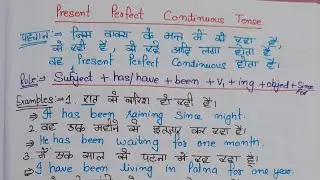 Present Perfect Continuous Tense
पहचान:- जिस वाक्य के अन्त में से रहा है,
से रही है, से रहे आदि लगा होता है
वह Present Perfect Continuous होता है।
Rule:- Subject + has/have + been + V₁ + ing + object + Since for
Examples:- 1. रात से बारिश हो रही है।
⇒ It has been raining Since night.
2. वह एक महीने से इंतज़ार कर रहा है।
⇒ He has been waiting for one month.
3. मैं एक साल से पटना में रह रहा हूँ।
⇒ I have been living in Patna for one year.